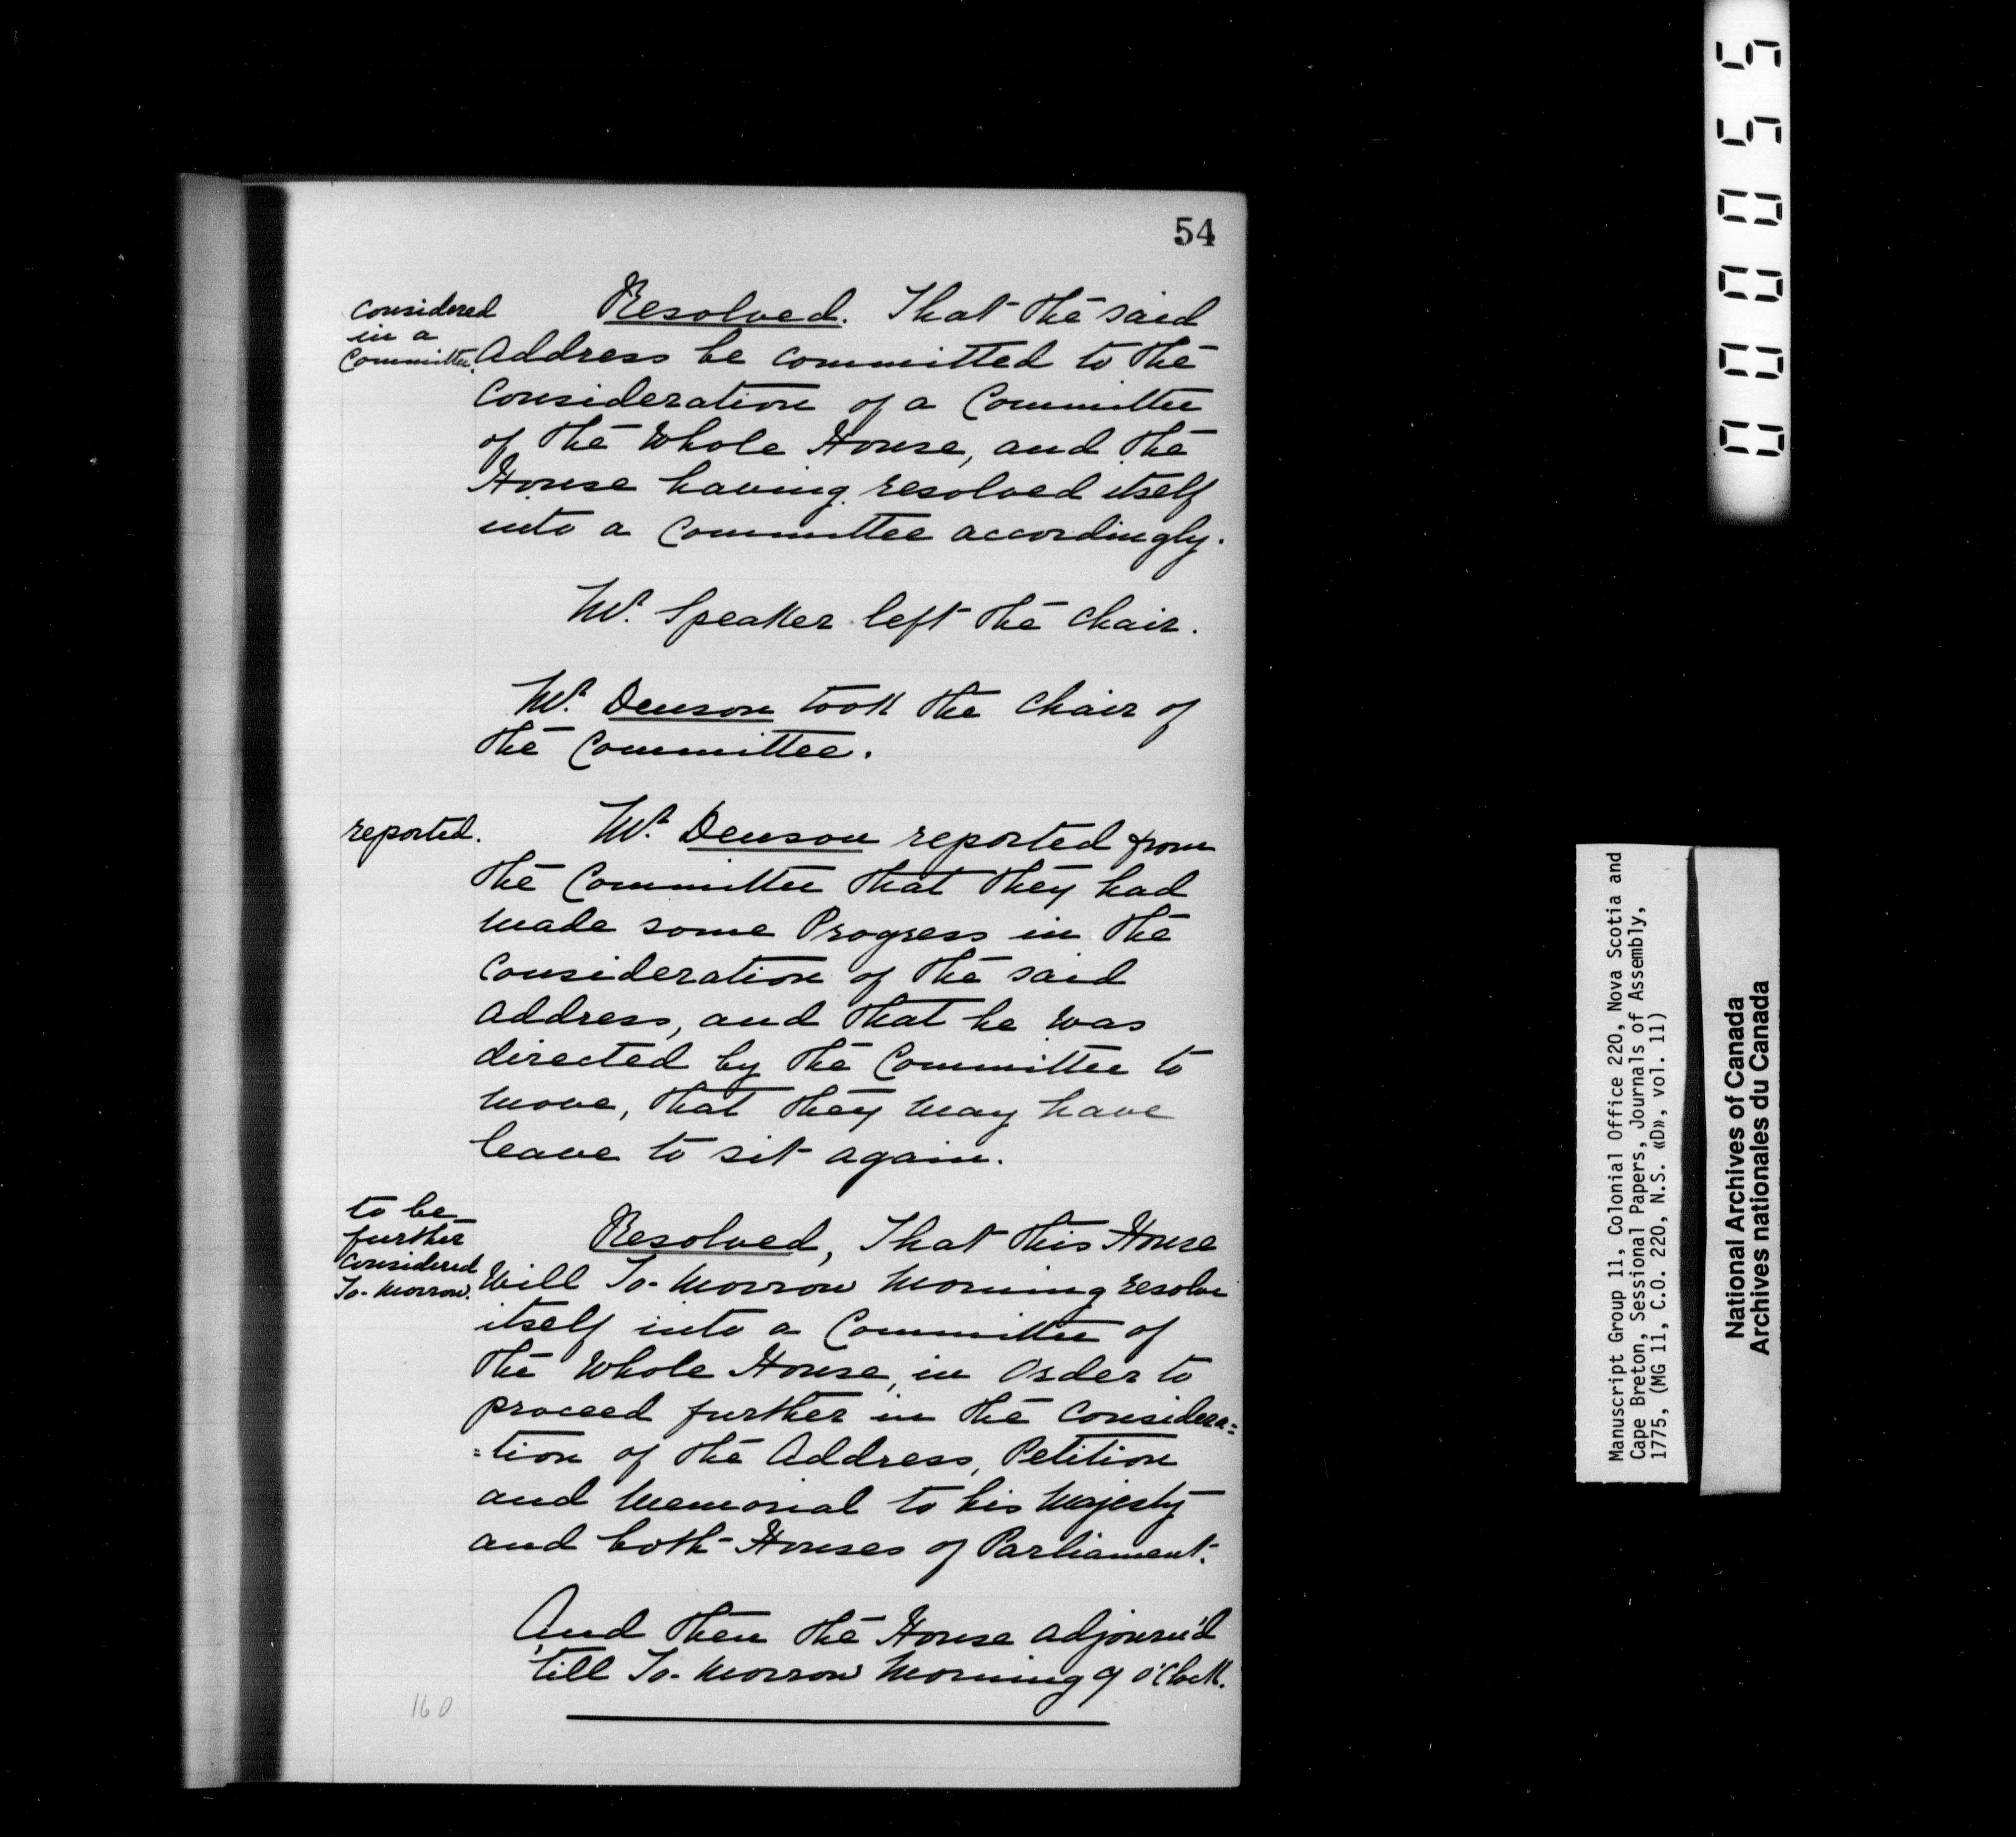 54
considered
in a
Committee.
Resolved. That the said
Address be committed to the
Consideration of a Committee
of the Whole House, and the
House having resolved itself
into a Committee accordingly.
Mr. Speaker left the Chair.
Mr. Denson took the Chair of
the Committee.
reported.
Mr. Denson reported from
the Committee that they had
made some Progress in the
Consideration of the said
Address, and that he was
directed by the Committee to
move, that they may have
leave to sit again.
to be
further
Considered
To-morrow.
Resolved, That this House
Will To-morrow Morning resolve
itself into a Committee of
the Whole House, in Order to
proceed further in the Considera=
=tion of the Address, Petition
and Memorial to his Majesty
and both Houses of Parliament.
And then the House adjourn'd
'till To-morrow Morning 9 o'Clock.
160
000055
Manuscript Group 11, Colonial Office 220, Nova Scotia and
Cape Breton, Sessional Papers, Journals of Assembly,
1775, (MG 11, C.O. 220, N.S. «D», vol. 11)
National Archives of Canada
Archives nationales du Canada